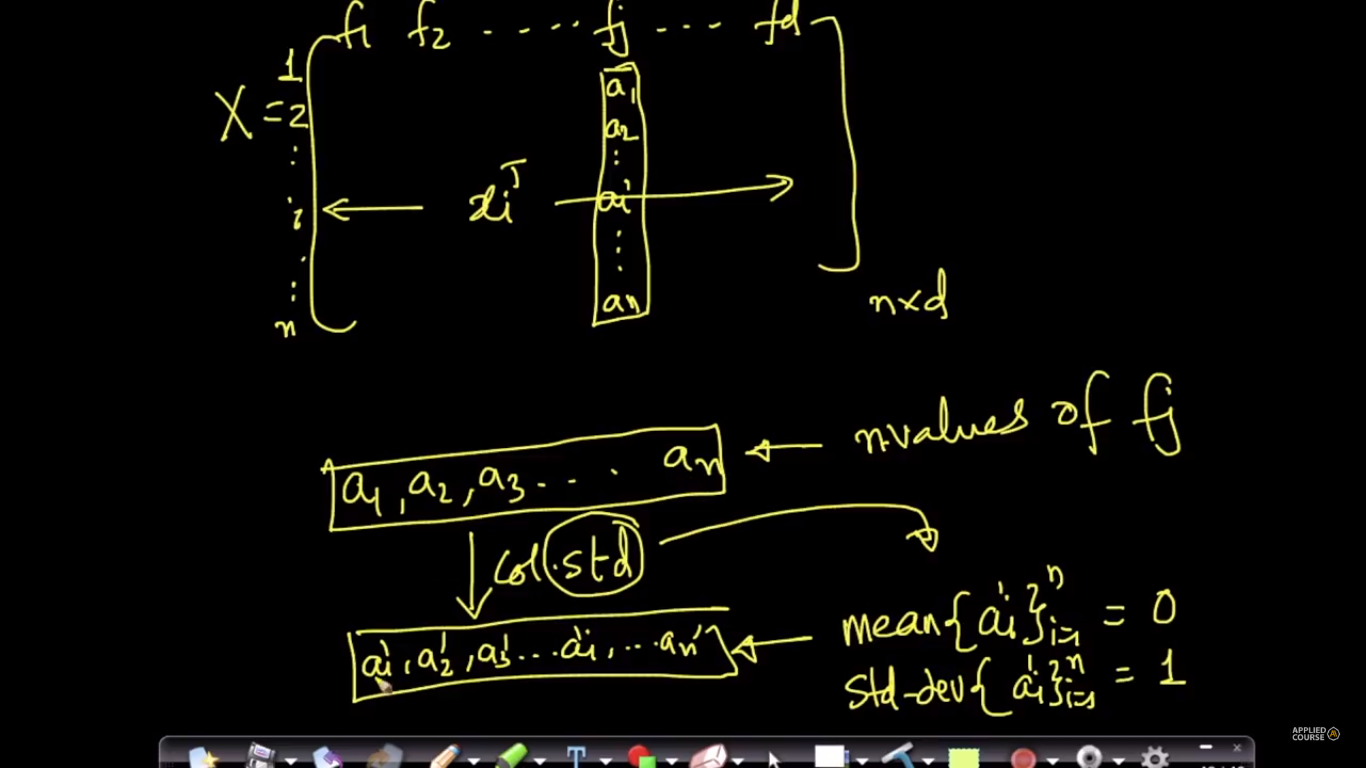 f1 f2 ..... fj ... fd
1
X = 2
:
a1
a2
:
i
xiᵀ
ai
:
:
n
an
n×d
a1, a2, a3 .... an ← n-values of fj
col.std
a1', a2', a3' ... ai', ... an' ← mean{ai'}ⁿi=1 = 0
std-dev{ai'}ⁿi=1 = 1
APPLIED
COURSE